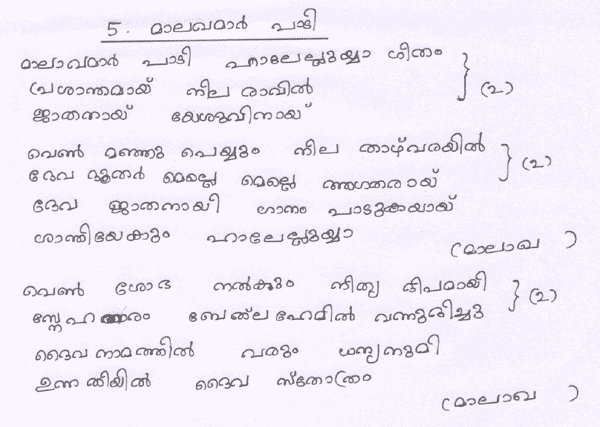 5. മാലഖമാർ പാടി
മാലാഖമാർ പാടി ഹാലേലുയ്യാ ഗീതം
പ്രശാന്തമായ് നീല രാവിൽ } (2)
ജാതനായ് യേശുവിനായ്
വെൺ മഞ്ഞു പെയ്യും നീല താഴ്‌വരയിൽ } (2)
ദേവ ദൂതർ മെല്ലെ മെല്ലെ ആഗതരായ്
ദേവ ജാതനായി ഗാനം പാടുകയായ്
ശാന്തിയേകും ഹാലേലുയ്യാ
(മാലാഖ )
വെൺ ശോഭ നൽകും നിത്യ ദീപമായി } (2)
സ്നേഹ ബേത്ലഹേമിൽ വന്നുദിച്ചു
ദൈവ നാമത്തിൽ വരും ധന്യനുമീ
ഉന്നതിയിൽ ദൈവ സ്തോത്രം
(മാലാഖ )